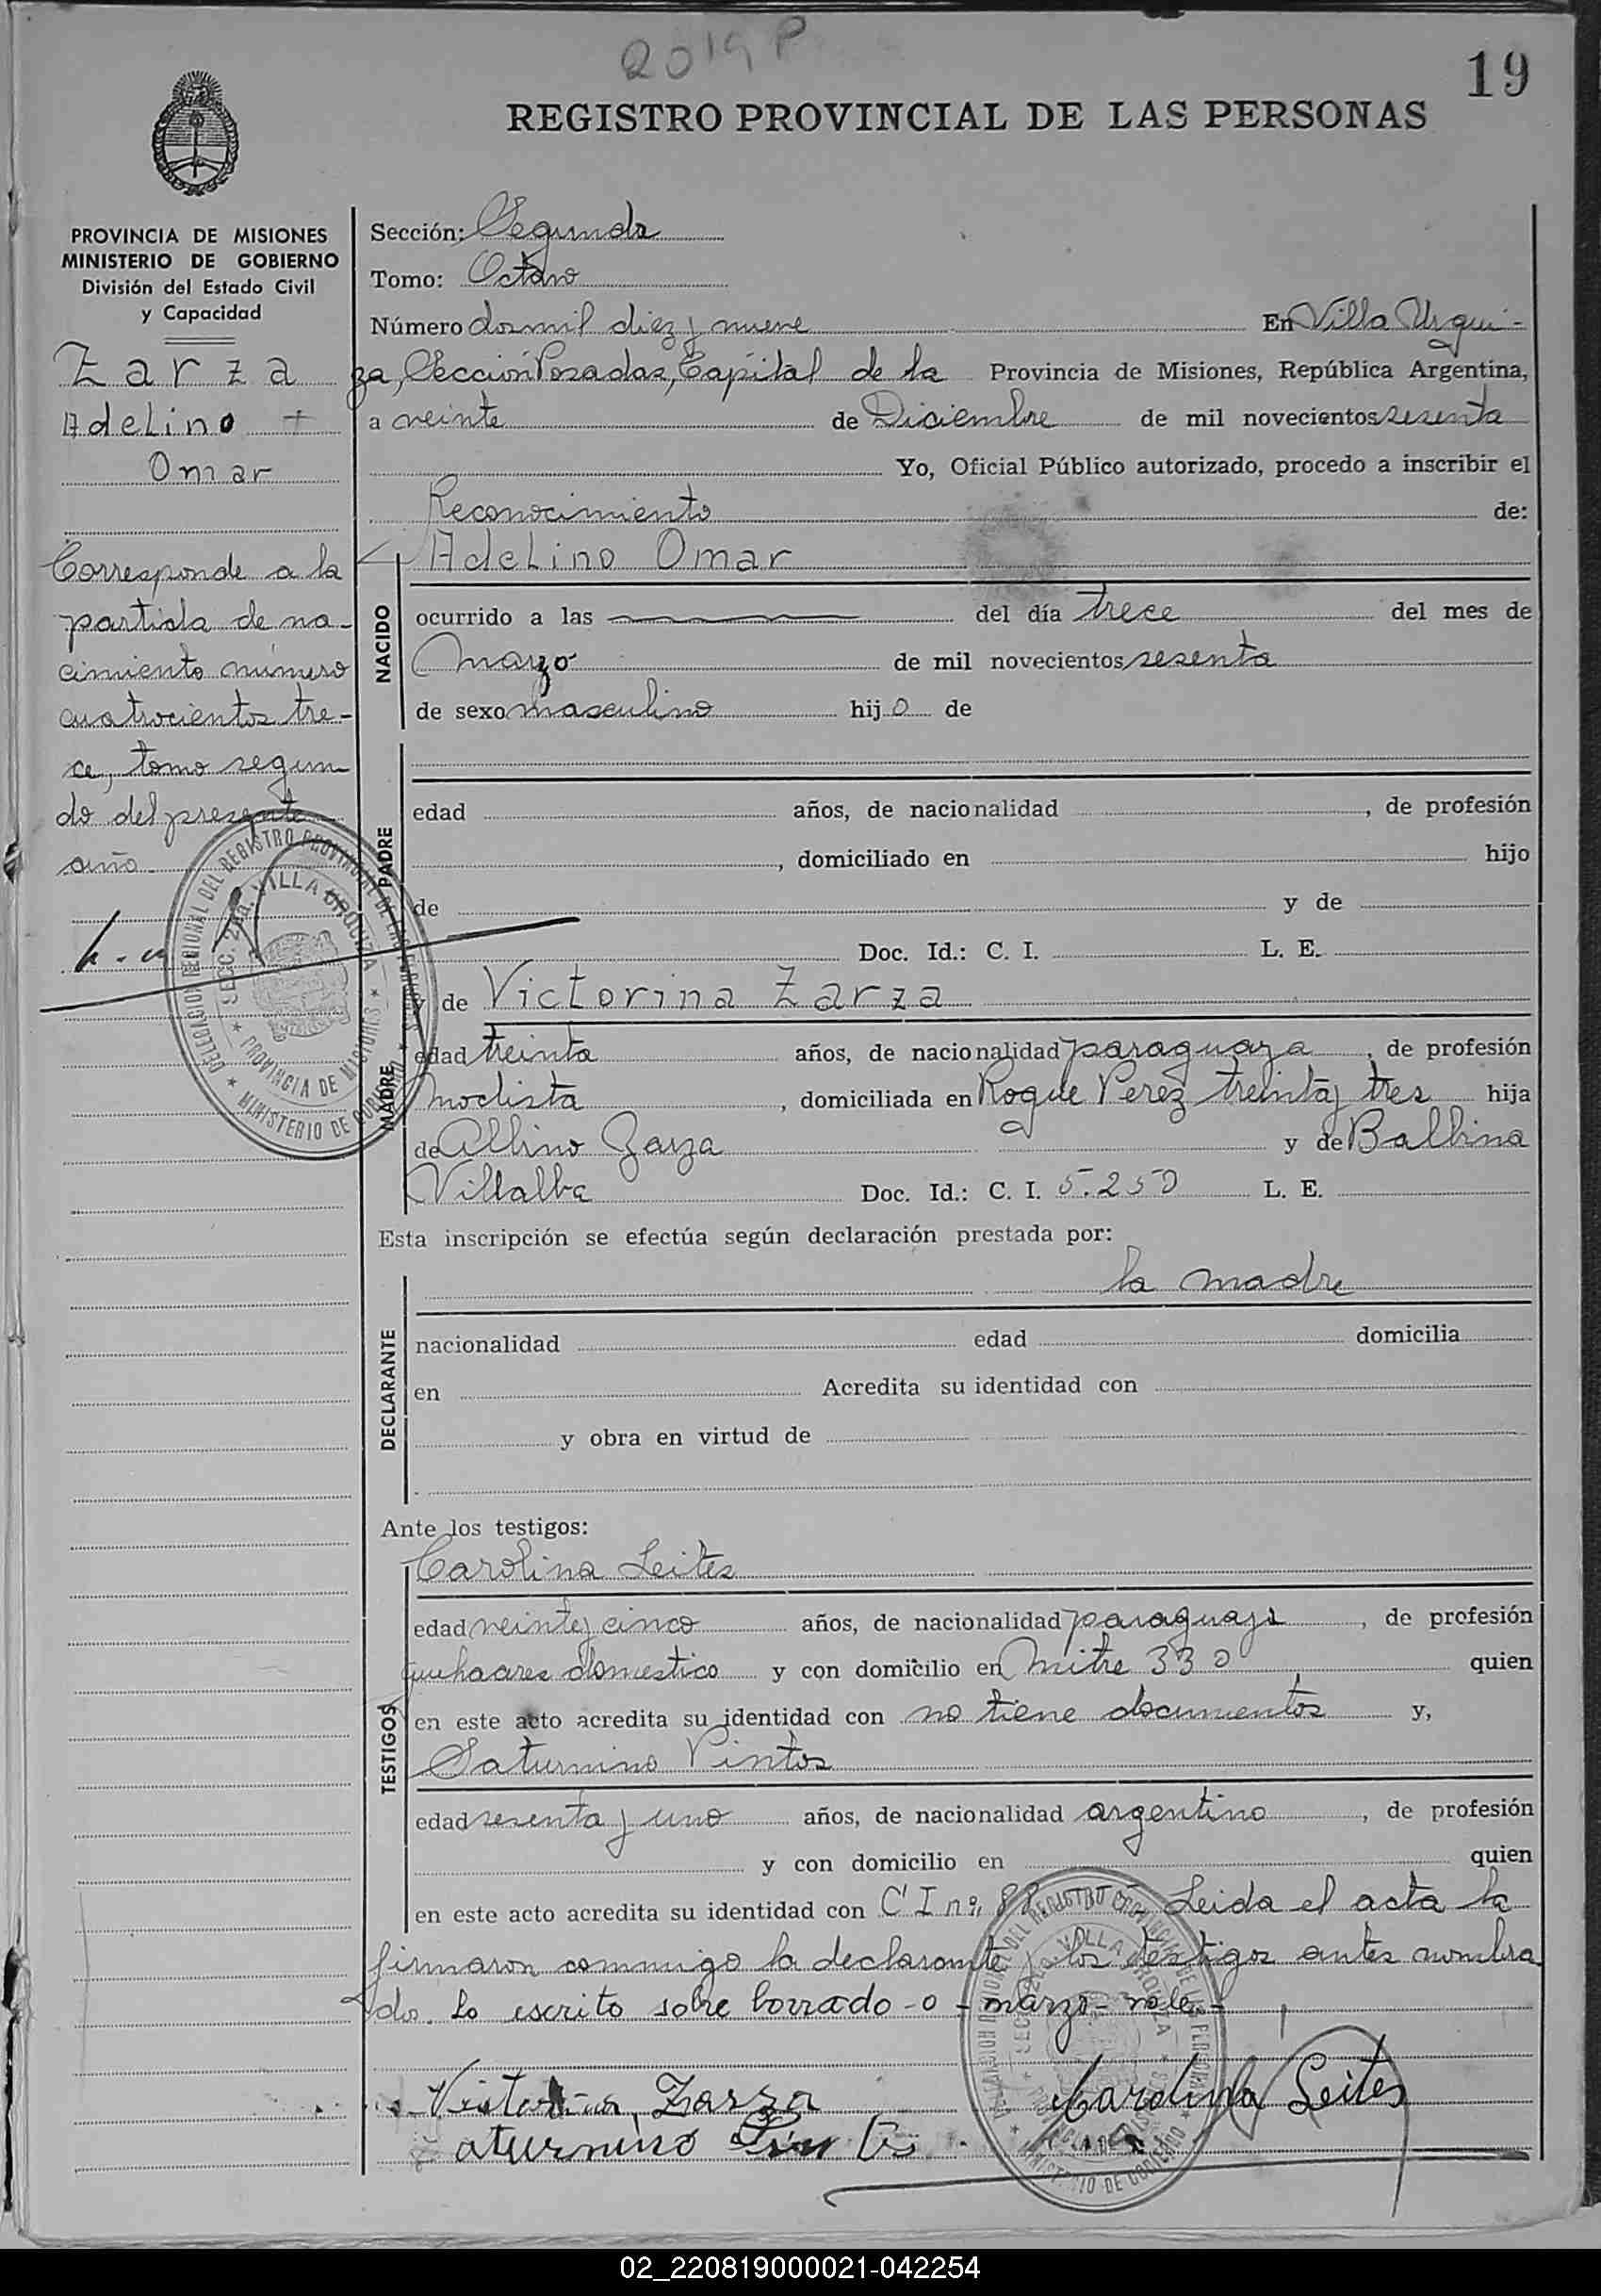 2019 P
19
REGISTRO PROVINCIAL DE LAS PERSONAS
PROVINCIA DE MISIONES
MINISTERIO DE GOBIERNO
División del Estado Civil
y Capacidad
Zarza
Adelino +
Omar
Corresponde a la
partida de na-
cimiento número
cuatrocientos tre-
ce, tomo segun
do del presente
año.
Sección: Segunda
Tomo: Octavo
Número dosmil diez y nueve En Villa Urqui-
za, Sección Posadas, Capital de la Provincia de Misiones, República Argentina,
a veinte de Diciembre de mil novecientos sesenta
Yo, Oficial Público autorizado, procedo a inscribir el
Reconocimiento de:
Adelino Omar
NACIDO
ocurrido a las del día trece del mes de
Marzo de mil novecientos sesenta
de sexo masculino hijo de
PADRE
edad años, de nacionalidad , de profesión
, domiciliado en hijo
de y de
Doc. Id.: C. I. L. E.
y de Victorina Zarza
MADRE
edad treinta años, de nacionalidad paraguaya , de profesión
modista , domiciliada en Roque Perez treinta y tres hija
de Albino Zarza y de Balbina
Villalba Doc. Id.: C. I. 5.250 L. E.
Esta inscripción se efectúa según declaración prestada por:
la madre
DECLARANTE
nacionalidad edad domicilia
en Acredita su identidad con
y obra en virtud de
Ante los testigos:
Carolina Leites
TESTIGOS
edad veinte y cinco años, de nacionalidad paraguaya , de profesión
domestico y con domicilio en Mitre 330 quien
en este acto acredita su identidad con no tiene documentos y,
Saturnino Pintos
edad sesenta y uno años, de nacionalidad argentino , de profesión
y con domicilio en quien
en este acto acredita su identidad con C I nº Leida el acta la
firmaron conmigo la declarante y los testigos antes nombra
do. Lo escrito sobre borrado -o- marzo- vale-
Victorina Zarza
Carolina Leites
aturnino Pintos
DELEGACION REGIONAL DEL REGISTRO PROVINCIAL DE LAS PERSONAS
SECC. 2da. VILLA URQUIZA
PROVINCIA DE MISIONES
MINISTERIO DE GOBIERNO
02_220819000021-042254